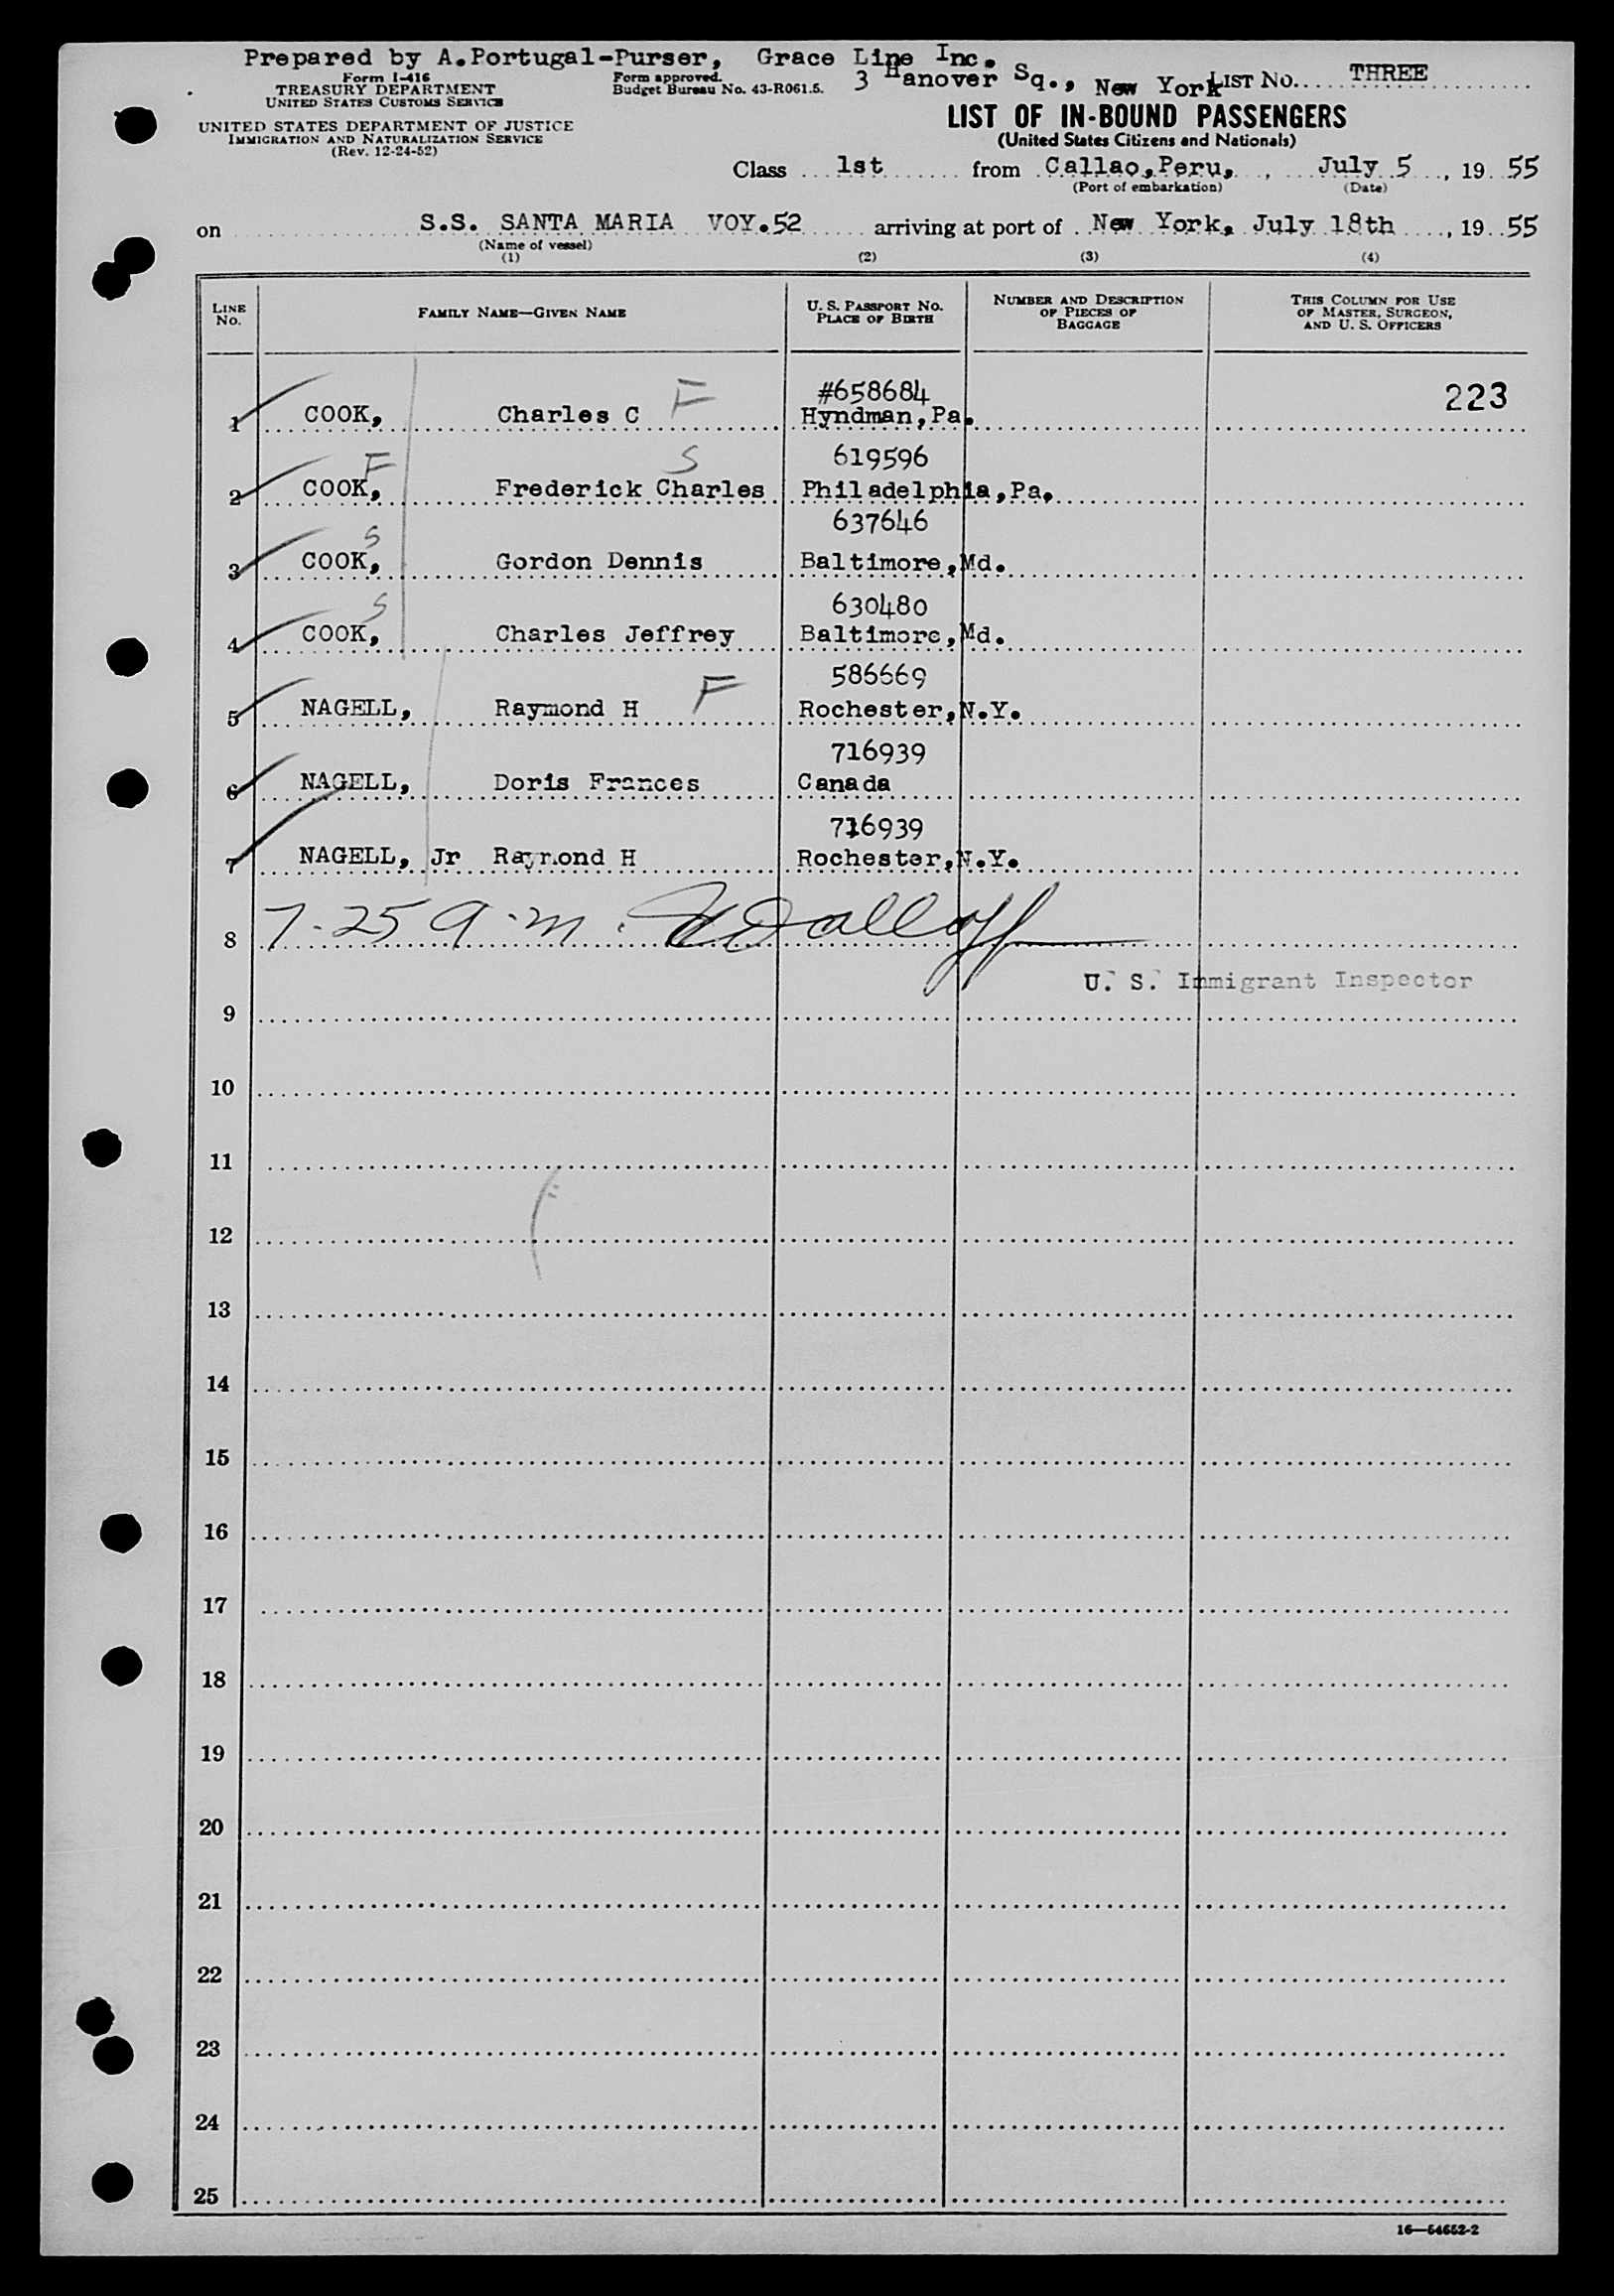 Prepared by A.Portugal-Purser, Grace Line Inc.
3 Hanover Sq., New York
Form I-416
TREASURY DEPARTMENT
UNITED STATES CUSTOMS SERVICE
Form approved.
Budget Bureau No. 43-R061.5.
LIST NO. THREE
UNITED STATES DEPARTMENT OF JUSTICE
IMMIGRATION AND NATURALIZATION SERVICE
(Rev. 12-24-52)
LIST OF IN-BOUND PASSENGERS
(United States Citizens and Nationals)
Class 1st from Callao, Peru, , July 5 , 19 55
(Port of embarkation) (Date)
on S.S. SANTA MARIA VOY.52 arriving at port of New York, July 18th , 19 55
(Name of vessel)
(1) (2) (3) (4)
LINE NO. FAMILY NAME—GIVEN NAME U. S. PASSPORT NO. PLACE OF BIRTH NUMBER AND DESCRIPTION OF PIECES OF BAGGAGE THIS COLUMN FOR USE OF MASTER, SURGEON, AND U. S. OFFICERS
#658684 223
1 COOK, Charles C F Hyndman,Pa.
F S 619596
2 COOK, Frederick Charles Philadelphia,Pa.
S 637646
3 COOK, Gordon Dennis Baltimore,Md.
S 630480
4 COOK, Charles Jeffrey Baltimore,Md.
586669
5 NAGELL, Raymond H F Rochester,N.Y.
716939
6 NAGELL, Doris Frances Canada
716939
7 NAGELL, Jr Raymond H Rochester,N.Y.
8 7-25 a.m.
U. S. Immigrant Inspector
9
10
11
12
13
14
15
16
17
18
19
20
21
22
23
24
25
16—54652-2